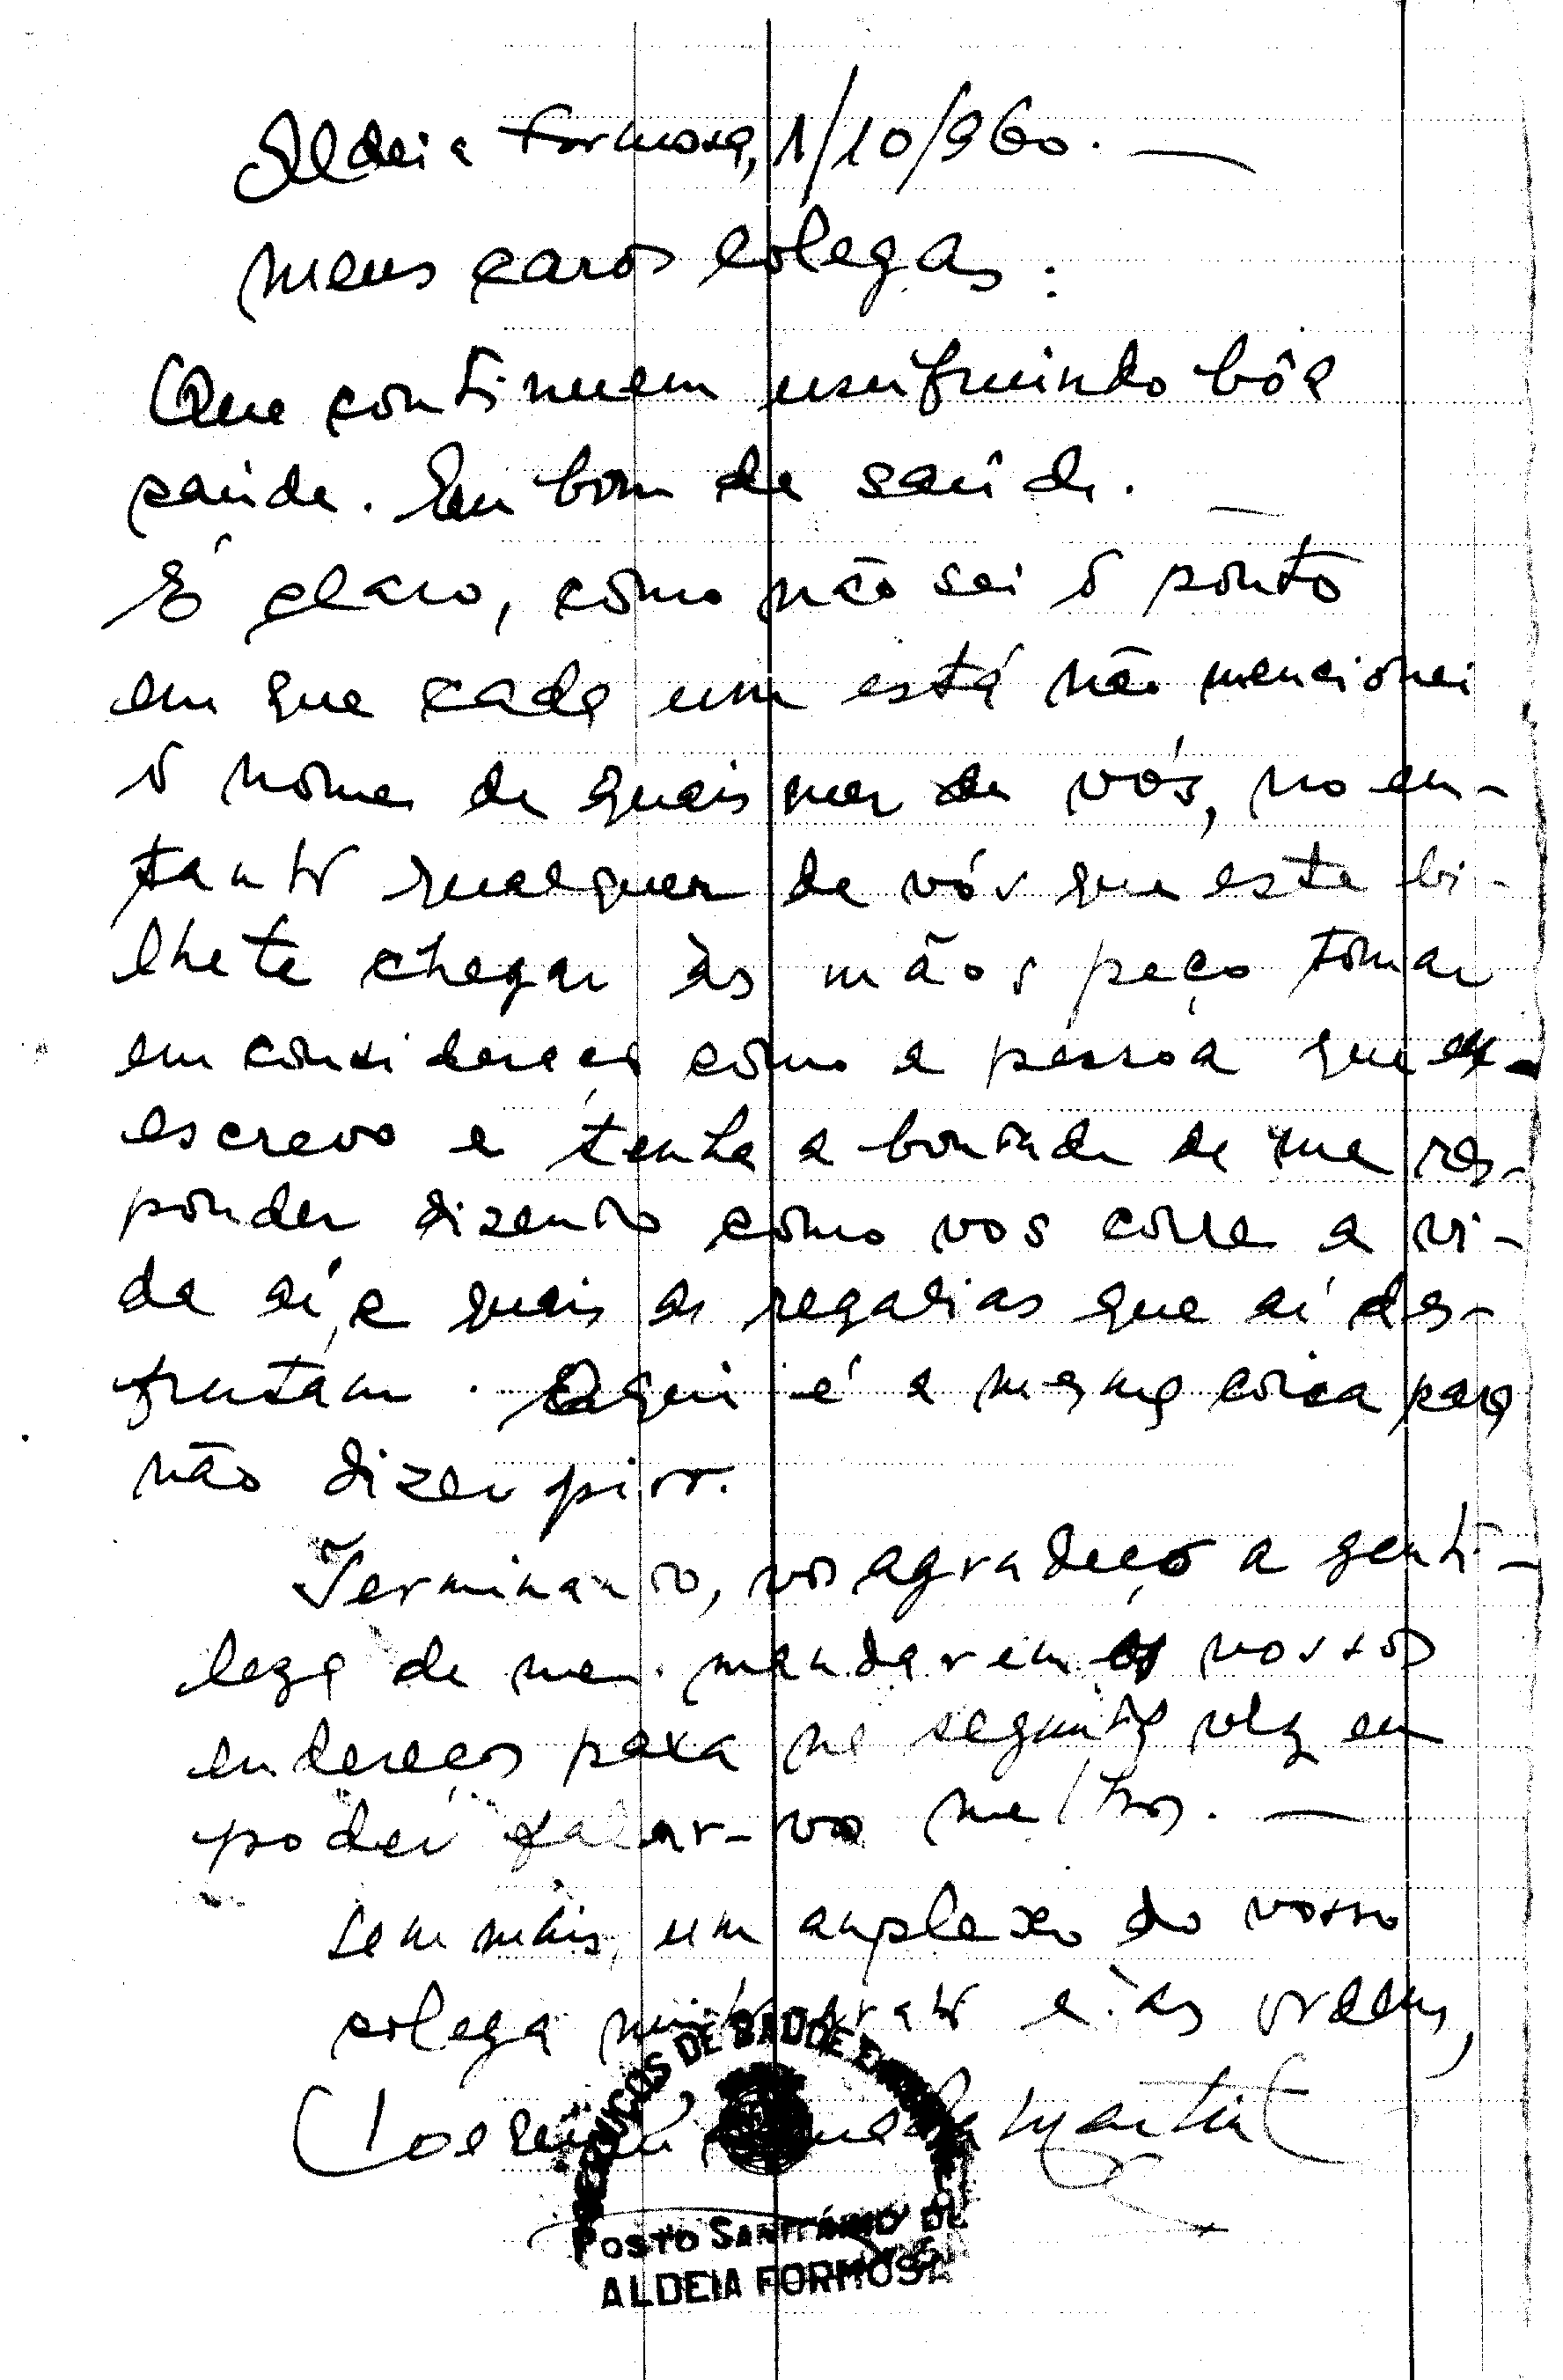 Aldeia Formosa, 1/10/960. —
Meus caros colegas:
Que continuem usufruindo bôa
saúde. Eu bom de saúde. —
É claro, como não sei o ponto
em que cada um está não mencionei
o nome de quaisquer de vós, no en-
tanto qualquer de vós que este bi-
lhete chegar às mãos peço tomar
em consideração como a pessoa que
escrevo e tenha a bondade de me res-
ponder dizendo como vos corre a vi-
da aí, e quais as regalias que aí des-
frutam. Aqui é a mesma coisa para
não dizer pior.
Terminando, vos agradeço a genti-
leza de me mandarem os vossos
endereços para na segunda vez eu
poder falar-vos melhor. —
Sem mais, um amplexo do vosso
colega muito grato e às ordens,
Martins
DE SAÚDE E
POSTO SANITÁRIO DE
ALDEIA FORMOSA